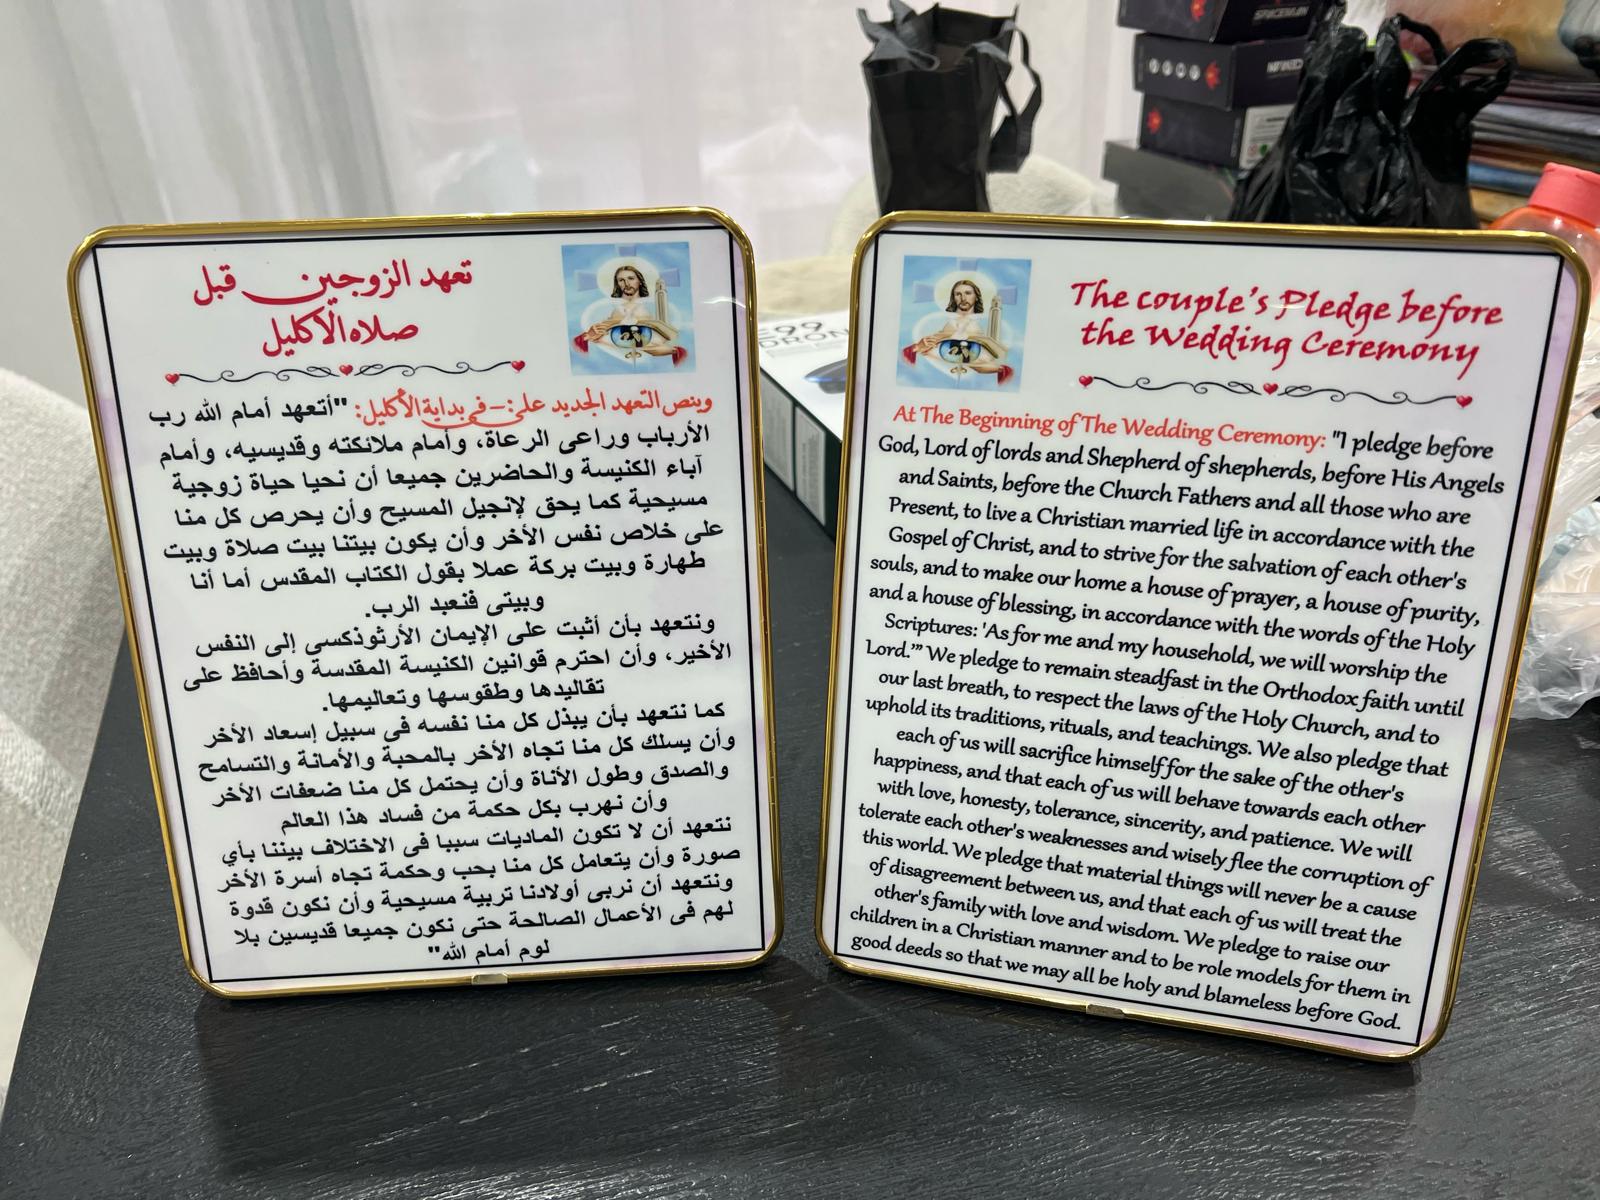 تعهد الزوجين قبل
صلاه الأكليل
وينص التعهد الجديد على:- في بداية الأكليل: "أتعهد أمام الله رب
الأرباب وراعى الرعاة، وأمام ملائكته وقديسيه، وأمام
آباء الكنيسة والحاضرين جميعا أن نحيا حياة زوجية
مسيحية كما يحق لإنجيل المسيح وأن يحرص كل منا
على خلاص نفس الأخر وأن يكون بيتنا بيت صلاة وبيت
طهارة وبيت بركة عملا بقول الكتاب المقدس أما أنا
وبيتى فنعبد الرب.
ونتعهد بأن أثبت على الإيمان الأرثوذكسى إلى النفس
الأخير، وأن احترم قوانين الكنيسة المقدسة وأحافظ على
تقاليدها وطقوسها وتعاليمها.
كما نتعهد بأن يبذل كل منا نفسه فى سبيل إسعاد الأخر
وأن يسلك كل منا تجاه الأخر بالمحبة والأمانة والتسامح
والصدق وطول الأناة وأن يحتمل كل منا ضعفات الأخر
وأن نهرب بكل حكمة من فساد هذا العالم
نتعهد أن لا تكون الماديات سببا فى الاختلاف بيننا بأي
صورة وأن يتعامل كل منا بحب وحكمة تجاه أسرة الأخر
ونتعهد أن نربى أولادنا تربية مسيحية وأن نكون قدوة
لهم فى الأعمال الصالحة حتى نكون جميعا قديسين بلا
لوم أمام الله"
The couple's Pledge before
the Wedding Ceremony
At The Beginning of The Wedding Ceremony: "I pledge before
God, Lord of lords and Shepherd of shepherds, before His Angels
and Saints, before the Church Fathers and all those who are
Present, to live a Christian married life in accordance with the
Gospel of Christ, and to strive for the salvation of each other's
souls, and to make our home a house of prayer, a house of purity,
and a house of blessing, in accordance with the words of the Holy
Scriptures: 'As for me and my household, we will worship the
Lord.'" We pledge to remain steadfast in the Orthodox faith until
our last breath, to respect the laws of the Holy Church, and to
uphold its traditions, rituals, and teachings. We also pledge that
each of us will sacrifice himself for the sake of the other's
happiness, and that each of us will behave towards each other
with love, honesty, tolerance, sincerity, and patience. We will
tolerate each other's weaknesses and wisely flee the corruption of
this world. We pledge that material things will never be a cause
of disagreement between us, and that each of us will treat the
other's family with love and wisdom. We pledge to raise our
children in a Christian manner and to be role models for them in
good deeds so that we may all be holy and blameless before God.
DRON